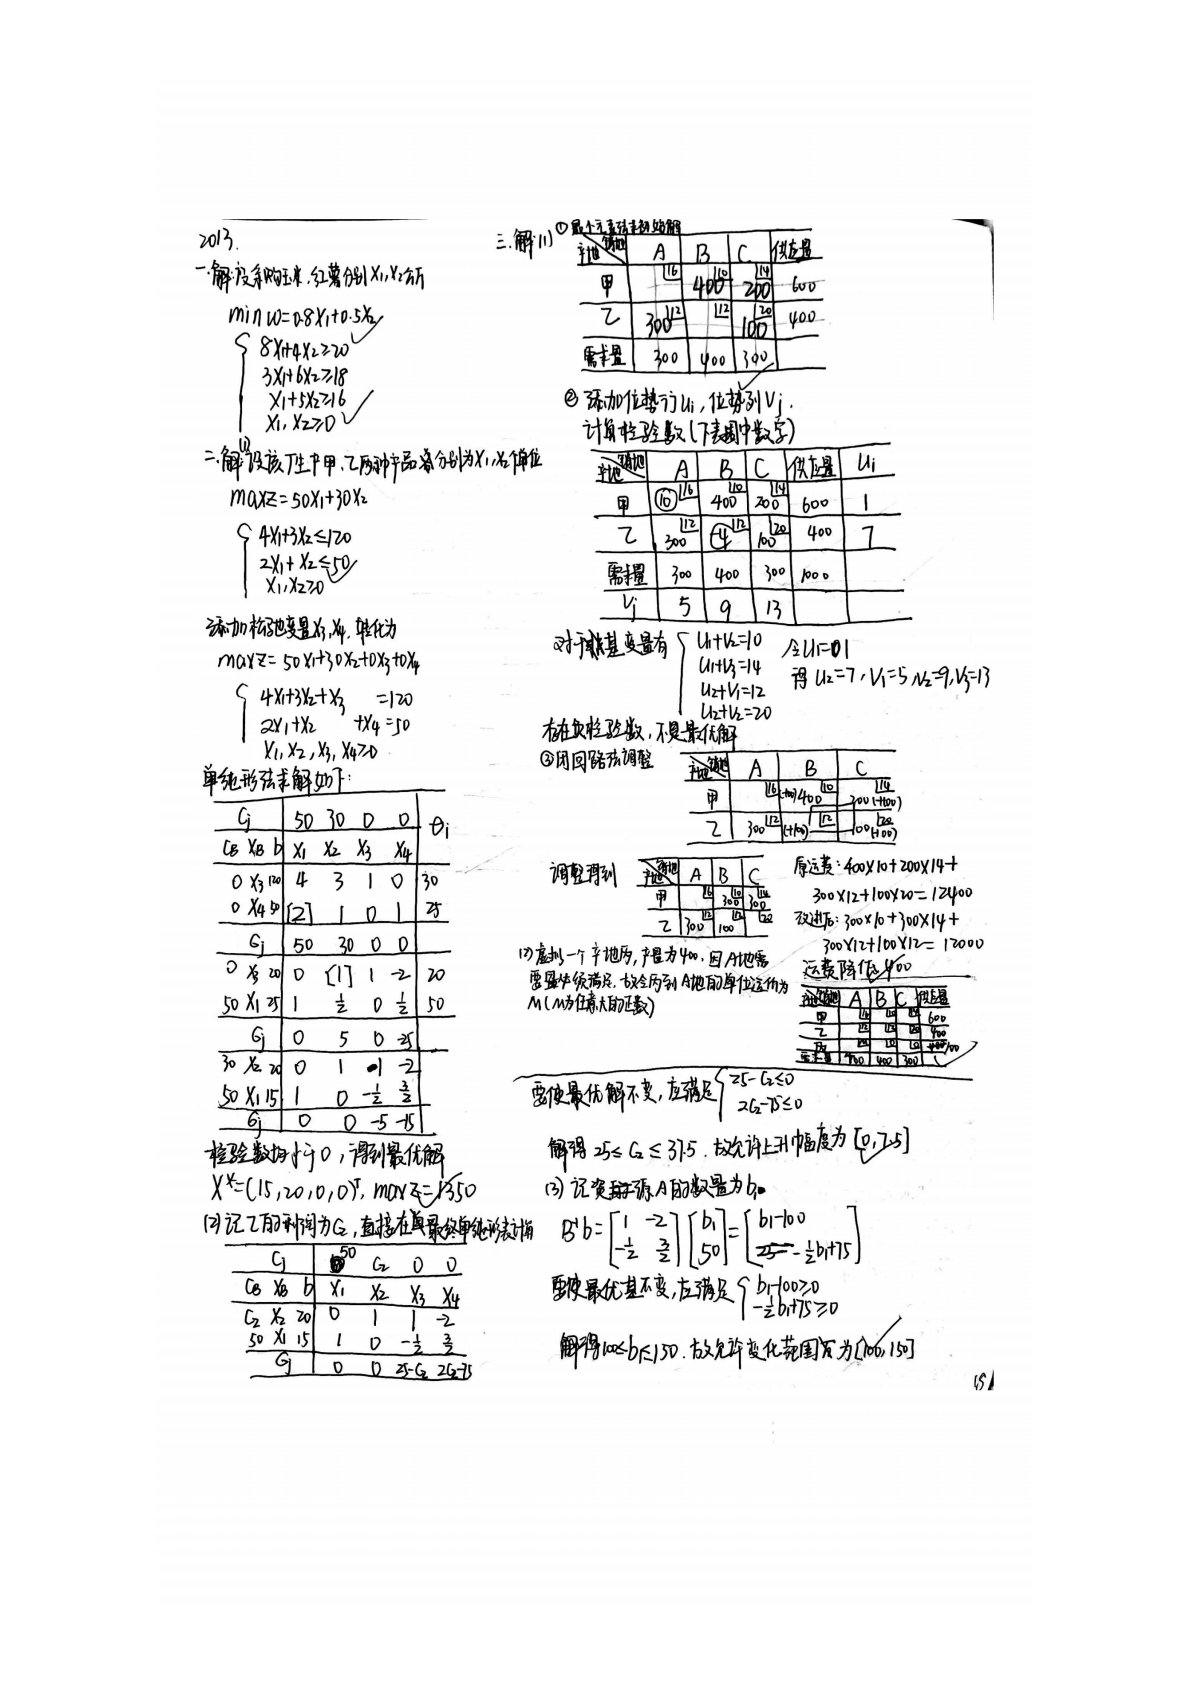 2013.
一.解:设采购玉米,红薯分别X₁,X₂公斤
min w=0.8X₁+0.5X₂
8X₁+4X₂≥20
3X₁+6X₂≥18
X₁+5X₂≥16
X₁,X₂≥0
二.解(1)设该厂生产甲、乙两种产品各分别为X₁,X₂个单位
maxz=50X₁+30X₂
4X₁+3X₂≤120
2X₁+X₂≤50
X₁,X₂≥0
添加松弛变量X₃,X₄,转化为
maxz=50X₁+30X₂+0X₃+0X₄
4X₁+3X₂+X₃ =120
2X₁+X₂ +X₄=50
X₁,X₂,X₃,X₄≥0
单纯形法求解如下:
Cj 50 30 0 0 θi
CB XB b X₁ X₂ X₃ X₄
0 X₃ 120 4 3 1 0 30
0 X₄ 50 [2] 1 0 1 25
σj 50 30 0 0
0 X₃ 20 0 [1] 1 -2 20
50 X₁ 25 1 1/2 0 1/2 50
σj 0 5 0 -25
30 X₂ 20 0 1 1 -2
50 X₁ 15 1 0 -1/2 3/2
σj 0 0 -5 -15
检验数均小于0,得到最优解
X*=(15,20,0,0)ᵀ, maxz=1350
(2)记乙的利润为C₂,直接在最终单纯形表计算
Cj 50 C₂ 0 0
CB XB b X₁ X₂ X₃ X₄
C₂ X₂ 20 0 1 1 -2
50 X₁ 15 1 0 -1/2 3/2
σj 0 0 25-C₂ 2C₂-75
三.解(1) ①最小元素法求初始解
产地 销地 A B C 供应量
甲 16 400 10 200 14 600
乙 300 12 12 100 20 400
需求量 300 400 300
②添加位势行Ui,位势列Vj.
计算检验数(下表圈中数字)
产地 销地 A B C 供应量 Ui
甲 10 16 400 10 200 14 600 1
乙 300 12 -4 12 100 20 400 7
需求量 300 400 300 1000
Vj 5 9 13
对于基变量有
U₁+V₂=10
U₁+V₃=14
U₂+V₁=12
U₂+V₂=20
令U₁=1
得U₂=7,V₁=5,V₂=9,V₃=13
存在负检验数,不是最优解
③闭回路法调整
产地 销地 A B C
甲 16 (-100)400 10 200 14 (+100)
乙 300 12 (+100) 12 100 20 (-100)
调整得到
产地 销地 A B C
甲 16 300 10 300 14
乙 300 12 100 12 20
原运费:400×10+200×14+
300×12+100×20=12400
改进后:300×10+300×14+
300×12+100×12=12000
运费降低400
(2)虚拟一个产地丙,产量为400.因A地需
要量必须满足,故令丙到A地的单位运价为
M(M为任意大的正数)
产地 销地 A B C 供应量
甲 16 10 14 600
乙 12 12 20 400
丙 M 0 0
需求量 400 300
要使最优解不变,应满足
25-C₂≤0
2C₂-75≤0
解得25≤C₂≤37.5.故允许上升幅度为[0,7.5]
(3)记资源A的数量为b₁
B⁻¹b=[1 -2; -1/2 3/2][b₁; 50]=[b₁-100; -1/2b₁+75]
要使最优基不变,应满足
b₁-100≥0
-1/2b₁+75≥0
解得100≤b₁≤150.故允许变化范围为[100,150]